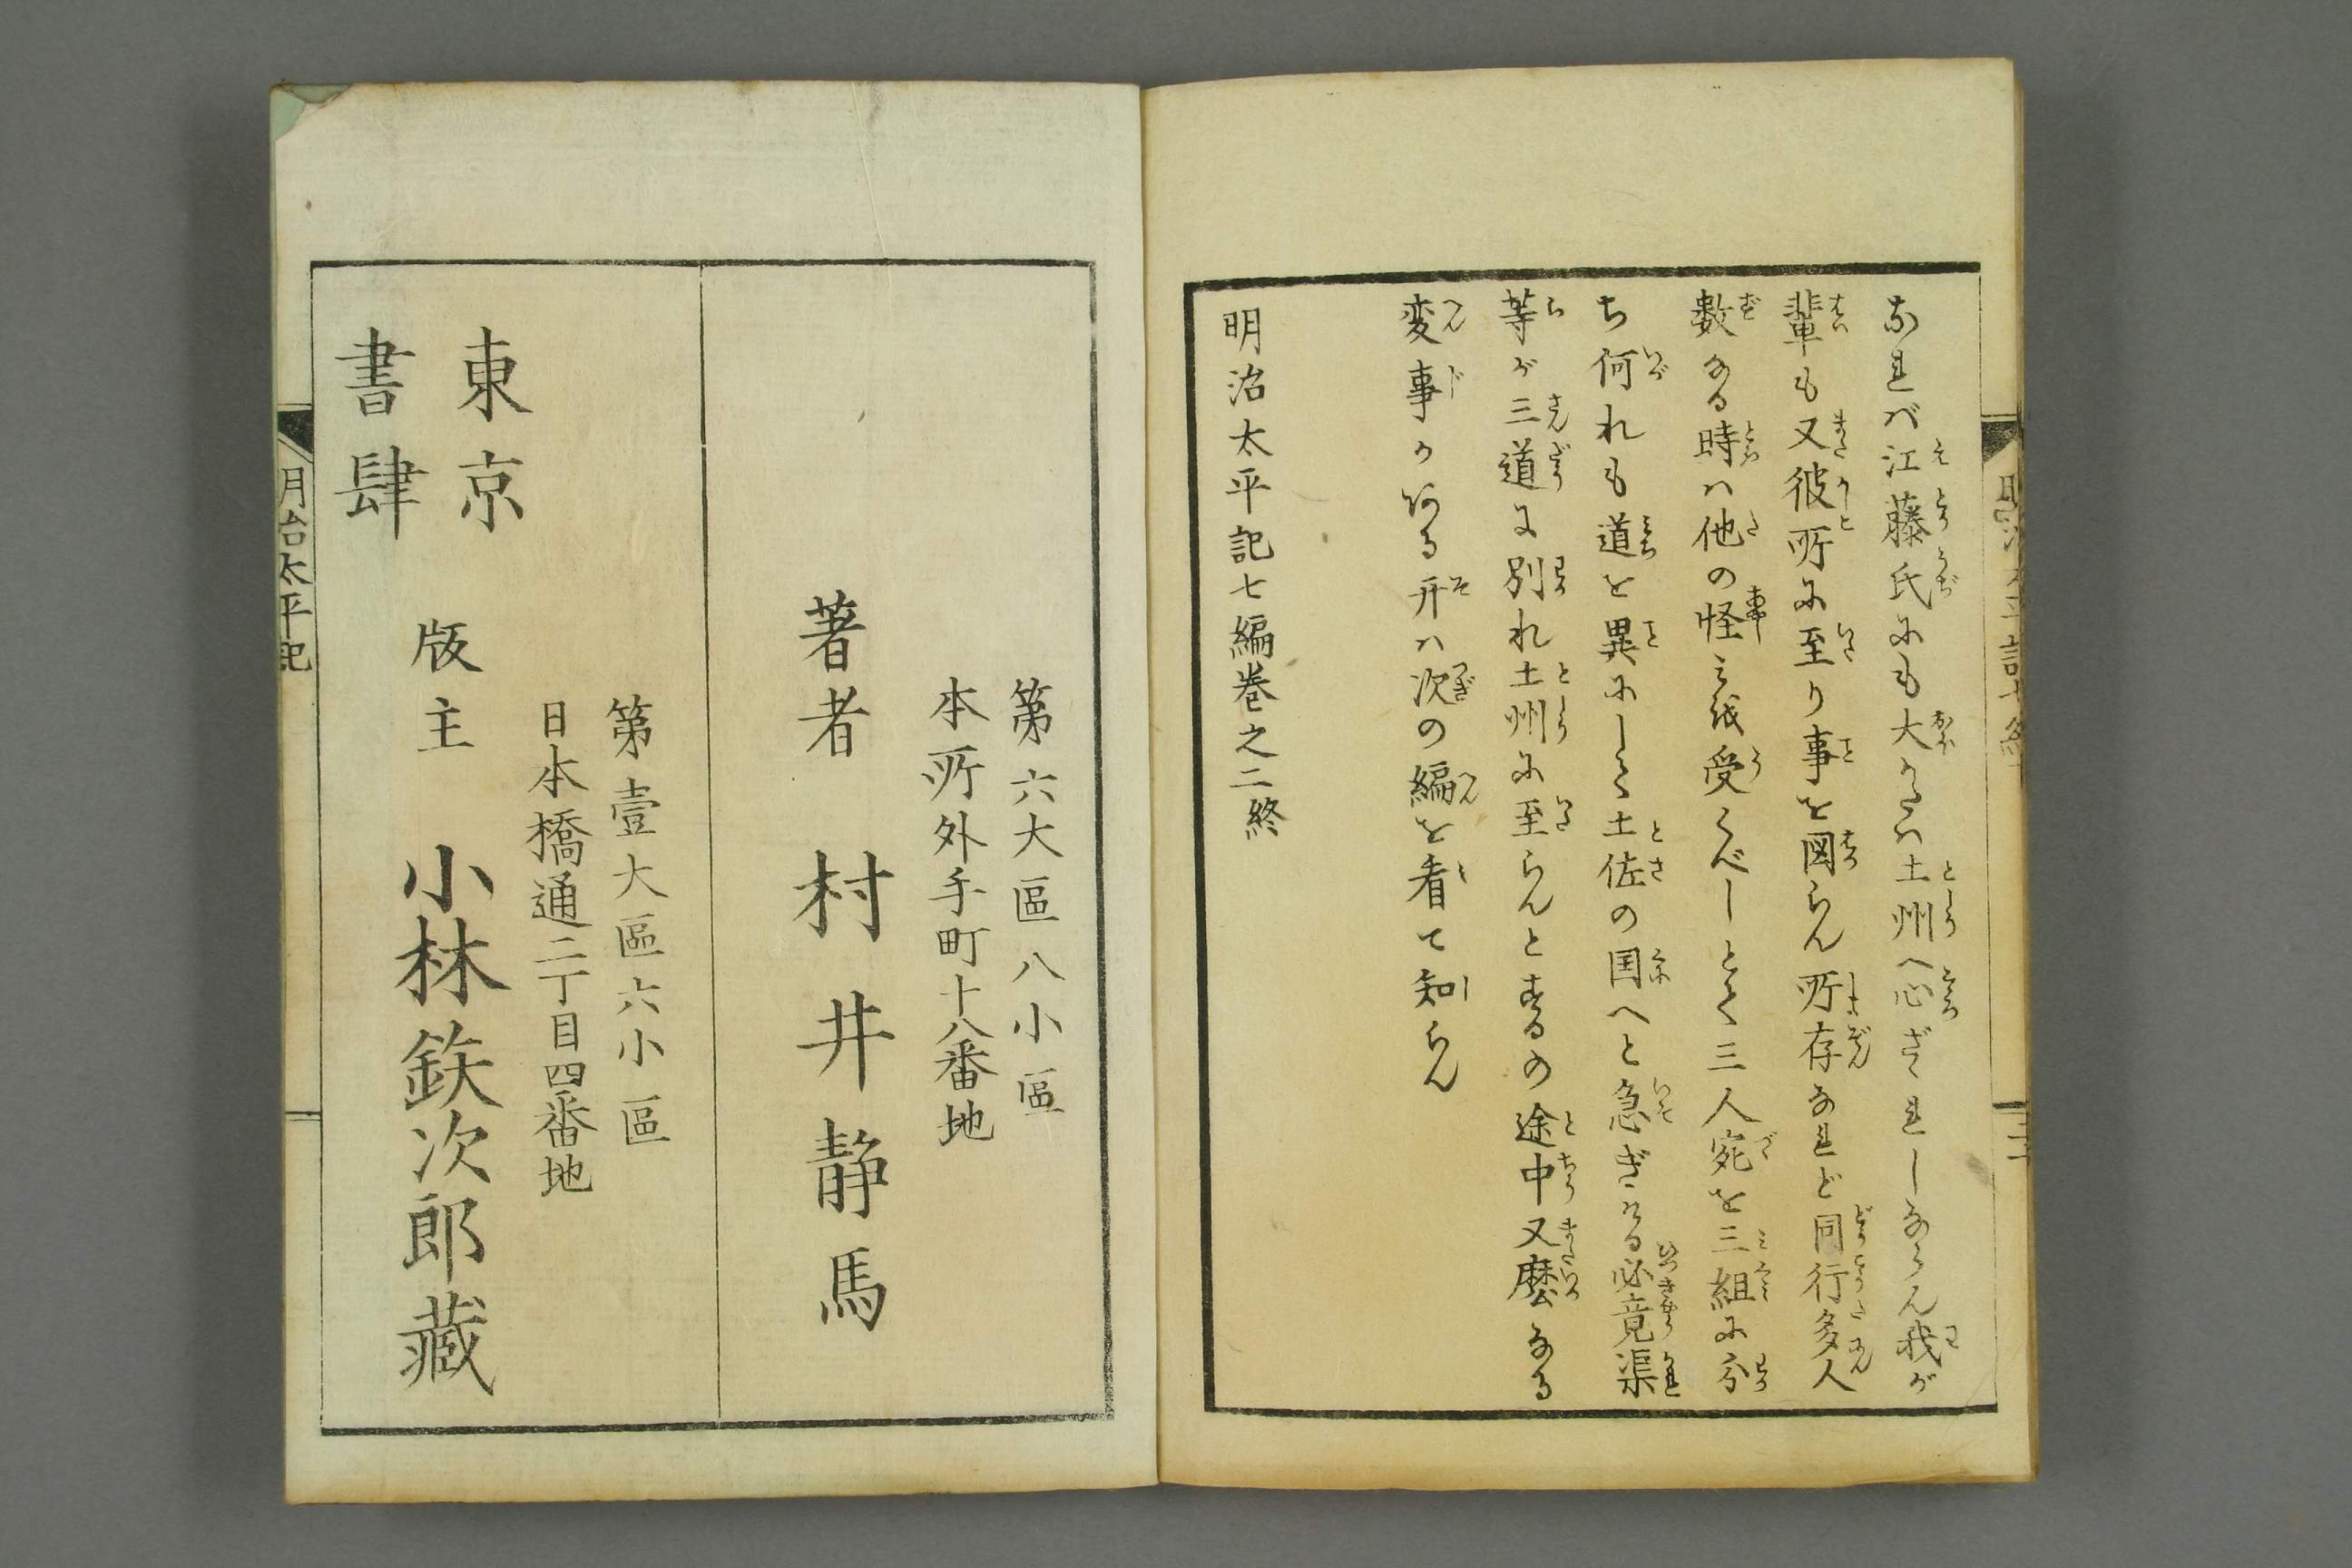 なれバ江藤氏にも大かたハ土州へ心ざゝれしならん我が
輩も又彼所に至り事を図らん所存なれど同行多人
数なる時ハ他の怪みを受くべしとて三人宛を三組に分
ち何れも道を異にして土佐の国へと急ぎける必竟渠
等が三道に別れ土州に至らんとするの途中又麼なる
変事かある开ハ次の編を看て知らん
明治太平記七編巻之二終
第六大區八小區
本所外手町十八番地
著者 村井静馬
第壹大區六小區
日本橋通二丁目四番地
東京
書肆
版主 小林鉃次郎藏
明治太平記